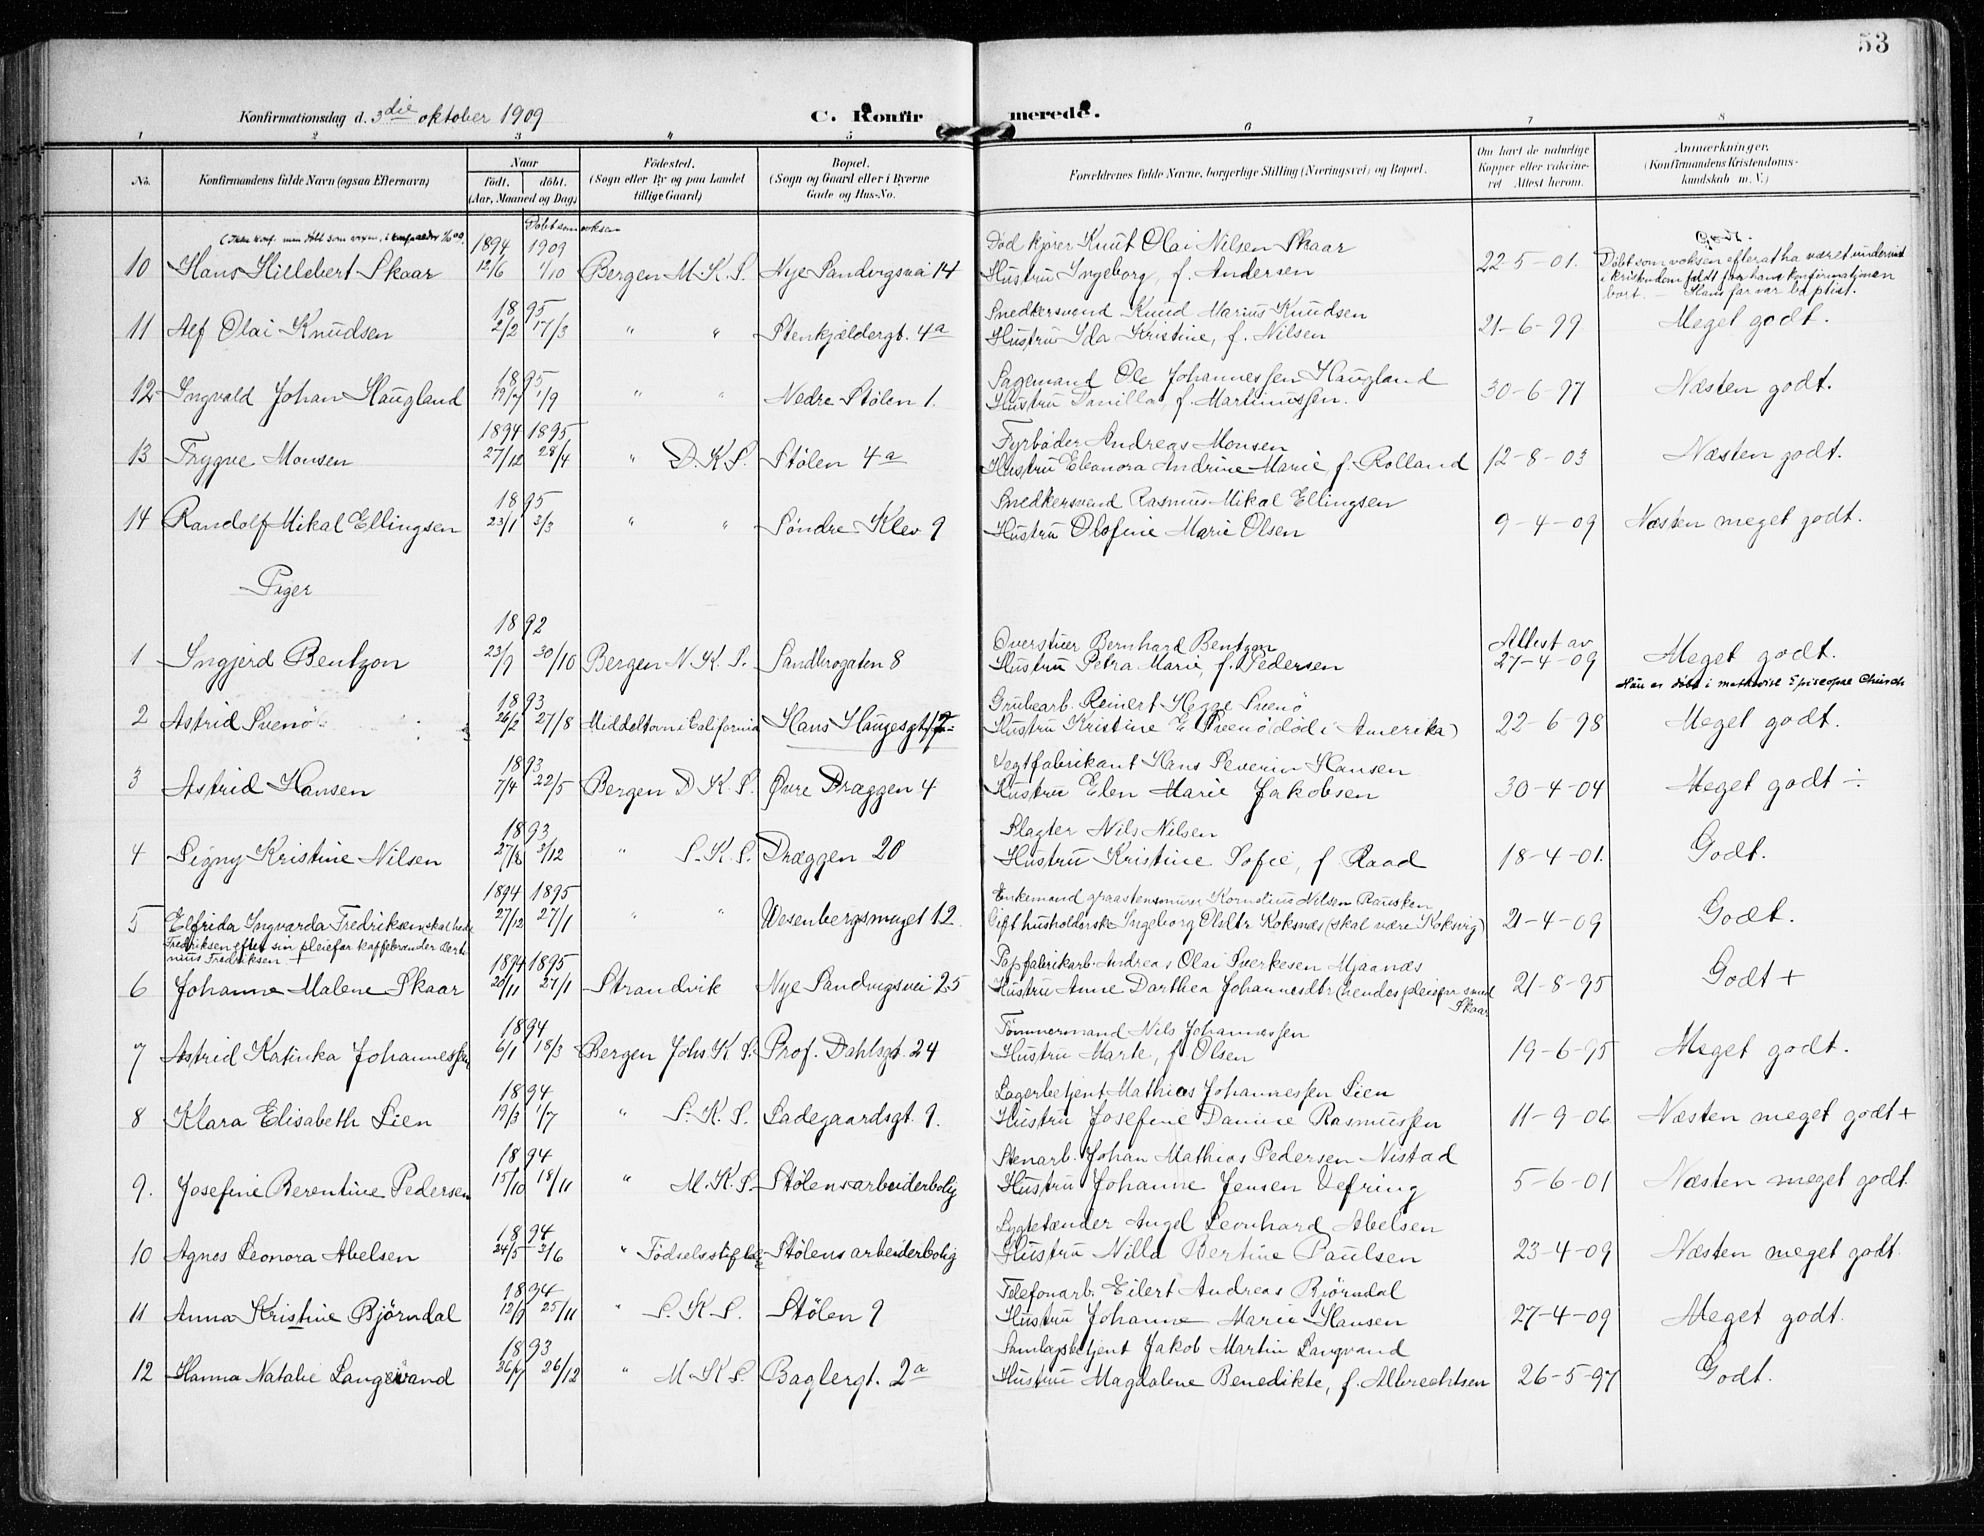 53
Konfirmationsdag d. 3die oktober 1909 C. Konfirmerede.
1 2 3 4 5 6 7 8
No. Konfirmandens fulde Navn (ogsaa Efternavn) Naar født. døbt. (Aar, Maaned og Dag) Fødested. (Sogn eller By og paa Landet tillige Gaard) Bopæl. (Sogn og Gaard eller i Byerne Gade og Hus-No. Forældrenes fulde Navne, borgerlige Stilling (Næringsvei) og Bopæl. Om havt de naturlige Kopper eller vakcineret Attest herom. Anmærkninger. (Konfirmandens Kristendomskundskab m. V.)
(Ikke konf. men døbt som voxen, i
Døbt som voksen
1894 1909 Død kjører Knut Olai Nilsen Skaar Godt.
10 Hans Hillebert Skaar 12/6 1/10 Bergen M. K. S. Nye Sandvigsvei 14 Hustru Ingeborg, f. Andersen 22-5-01. Døbt som voksen efterat ha været undervist
i kristendom faldt for ham konfirmationen
bort. — Hans far var baptist.
1895 Snedkersvend Knud Marius Knudsen
11 Alf Olai Knudsen 2/2 17/3 " " Stenkjeldergt. 4a Hustru Ida Kristine, f. Nilsen 21-6-99 Meget godt.
1895 Sagemand Ole Johannessen Haugland
12 Ingvald Johan Haugland 19/7 1/9 " " Nedre Stølen 1. Hustru Danilla, f. Martinussen. 30-6-97 Næsten godt.
1894 1895 Fyrbøder Andreas Monsen
13 Trygve Monsen 27/12 28/4 " D. K. S. Stølen 4a Hustru Eleonora Andrine Marie f. Rolland 12-8-03 Næsten godt.
1895 Snedkersvend Rasmus Mikal Ellingsen
14 Randolf Mikal Ellingsen 23/1 3/3 " " Søndre Klev 9 Hustru Olofine Marie Olsen 9-4-09 Næsten meget godt.
Piger
1892 Overstuer Bernhard Bentzon Attest av
1 Ingjerd Bentzon 23/9 30/10 Bergen N. K. S. Sandbrogaten 8 Hustru Petra Marie, f. Pedersen 27-4-09 Meget godt.
Hun er døbt i methodist Episcopal Church
1893 Grubearb. Reinert Hegge Svenø
2 Astrid Svenø 26/2 27/8 Middeltown i California Hans Haugesgt. Hustru Kristine E. Svenø (død i Amerika) 22-6-98 Meget godt.
1893 Vegtfabrikant Hans Severin Hansen
3 Astrid Hansen 7/4 22/5 Bergen D. K. S. Øvre Dræggen 4 Hustru Elen Marie Jakobsen 30-4-04 Meget godt ÷
1893 Slagter Nils Nilsen
4 Signy Kristine Nilsen 27/8 3/12 " S. K. S. Dræggen 20 Hustru Kristine Sofie, f. Raad 18-4-01. Godt.
1894 1895 Enkemand graastensmurer Kornelius Nilsen Rausken
5 Elfrida Ingvarda Fredriksen skal hede 27/12 27/1 " " Wesenbergsmuget 12 Gift husholderske Ingeborg Olsdtr Koksnæs (skal være Kokvig) 21-4-09 Godt.
Fredriksen efter sin pleiefar kaffebrænder
Fredriksen +
1894 1895 Papfabrikarb. Andreas Olai Sverkesen Mjaanæs
6 Johanne Malene Skaar 20/11 27/1 Strandvik Nye Sandvigsvei 25 Hustru Anne Dorthea Johannesdtr (hendes pleiefar smed Skaar 21-8-95 Godt +
1894 Tømmermand Nils Johannessen
7 Astrid Katinka Johannessen 6/1 18/3 Bergen Johs K. S. Prof. Dahlsgt. 24 Hustru Marte, f. Olsen 19-6-95 Meget godt.
1894 Lagerbetjent Mathias Johannessen Lien
8 Klara Elisabeth Lien 19/3 1/7 " S. K. S. Ladegaardsgt. 9. Hustru Josefine Damine Rasmussen 11-9-06 Næsten meget godt +
1894 Stenarb. Johan Mathias Pedersen Nistad
9. Josefine Berentine Pedersen 15/10 18/11 " M. K. S. Stølens arbeiderbolig Hustru Johanne Jensen Vefring 5-6-01 Næsten meget godt.
1894 Lygtetænder Angel Leonhard Abelsen
10 Agnes Leonora Abelsen 24/5 3/6 " Fødselsstiftelse Stølens arbeiderbolig Hustru Nilla Bertine Paulsen 23-4-09 Næsten meget godt.
1894 Telefonarb. Eilert Andreas Bjørndal
11 Anna Kristine Bjørndal 12/9 25/11 " S. K. S. Stølen 9 Hustru Johanne Marie Hansen 27-4-09 Meget godt.
1893 Samlagsbetjent Jakob Martin Langvand
12 Hanna Natalie Langevand 26/7 26/12 " M. K. S. Baglergt. 2a Hustru Magdalene Benedikte, f. Albrechtsen 26-5-97 Godt.